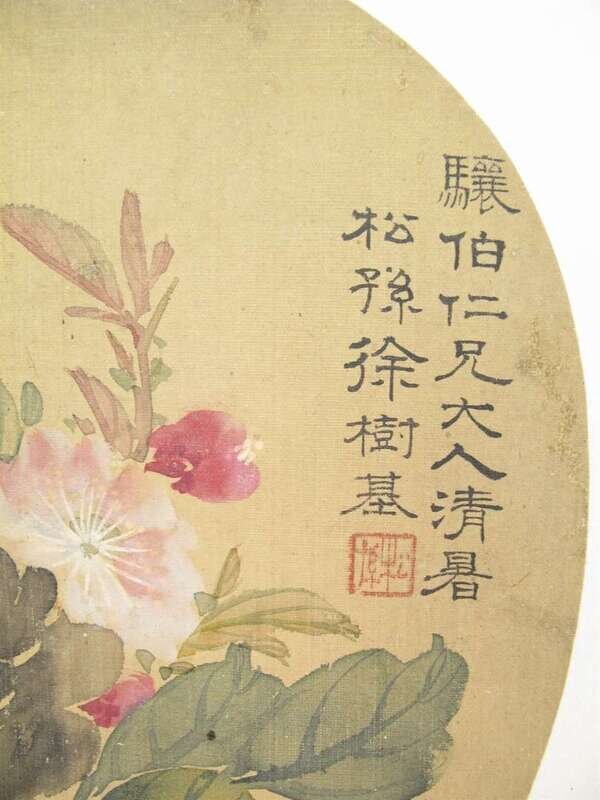 驤伯仁兄大人清暑
松孫徐樹基
松孫